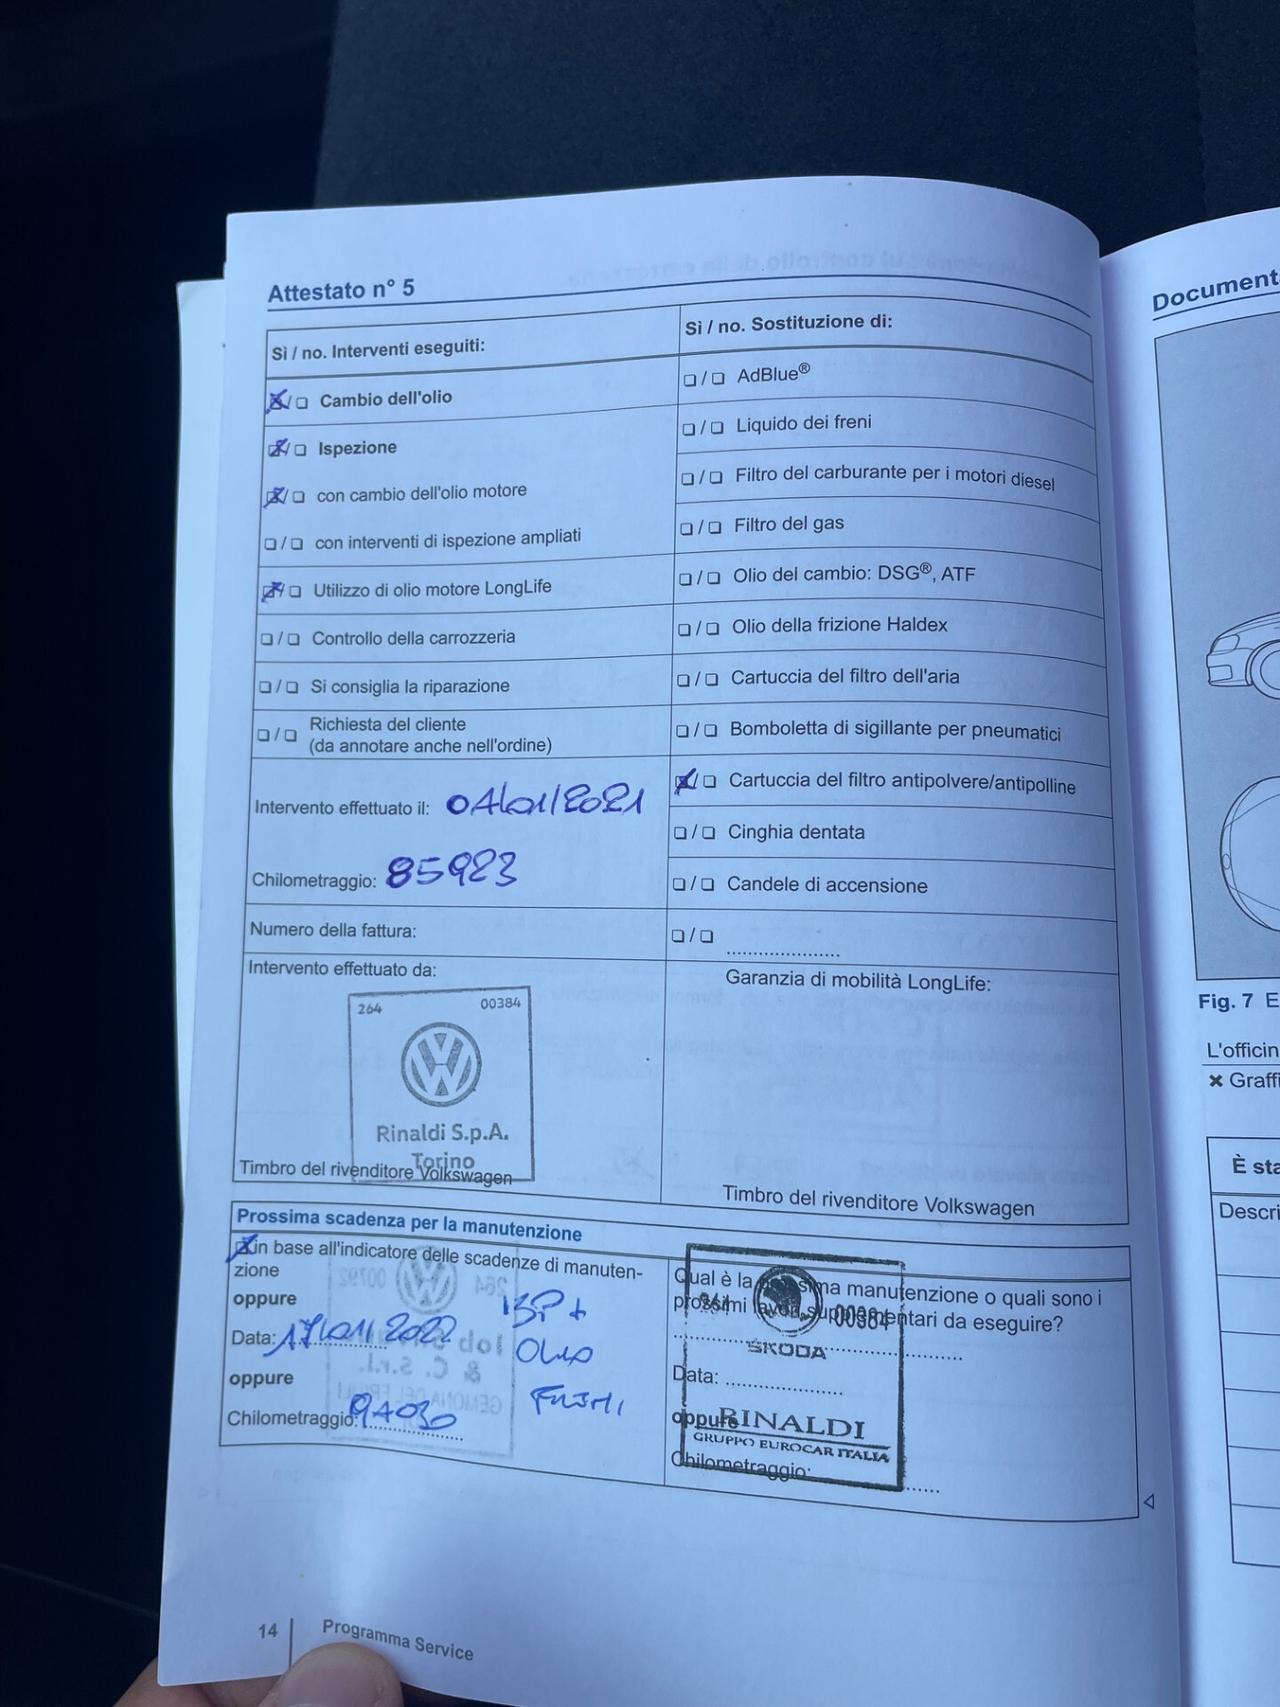 Attestato n° 5
Sì / no. Interventi eseguiti:
❏ / ❏ Cambio dell'olio
❏ / ❏ Ispezione
❏ / ❏ con cambio dell'olio motore
❏ / ❏ con interventi di ispezione ampliati
❏ / ❏ Utilizzo di olio motore LongLife
❏ / ❏ Controllo della carrozzeria
❏ / ❏ Si consiglia la riparazione
❏ / ❏ Richiesta del cliente
(da annotare anche nell'ordine)
Intervento effettuato il: 04/01/2021
Chilometraggio: 85923
Numero della fattura:
Intervento effettuato da:
264 00384
Rinaldi S.p.A.
Torino
Timbro del rivenditore Volkswagen
Sì / no. Sostituzione di:
❏ / ❏ AdBlue®
❏ / ❏ Liquido dei freni
❏ / ❏ Filtro del carburante per i motori diesel
❏ / ❏ Filtro del gas
❏ / ❏ Olio del cambio: DSG®, ATF
❏ / ❏ Olio della frizione Haldex
❏ / ❏ Cartuccia del filtro dell'aria
❏ / ❏ Bomboletta di sigillante per pneumatici
❏ / ❏ Cartuccia del filtro antipolvere/antipolline
❏ / ❏ Cinghia dentata
❏ / ❏ Candele di accensione
❏ / ❏ ....................
Garanzia di mobilità LongLife:
Timbro del rivenditore Volkswagen
Prossima scadenza per la manutenzione
❏ in base all'indicatore delle scadenze di manuten-
zione
oppure
Data: 17/01/2022
oppure
Chilometraggio:
OLIO
Qual è la prossima manutenzione o quali sono i
prossimi lavori supplementari da eseguire?
264 00384
ŠKODA
Data: ....................
oppure
RINALDI
GRUPPO EUROCAR ITALIA
Chilometraggio:
14 Programma Service
Fig. 7
L'officin
✖ Graffi
È sta
Descri